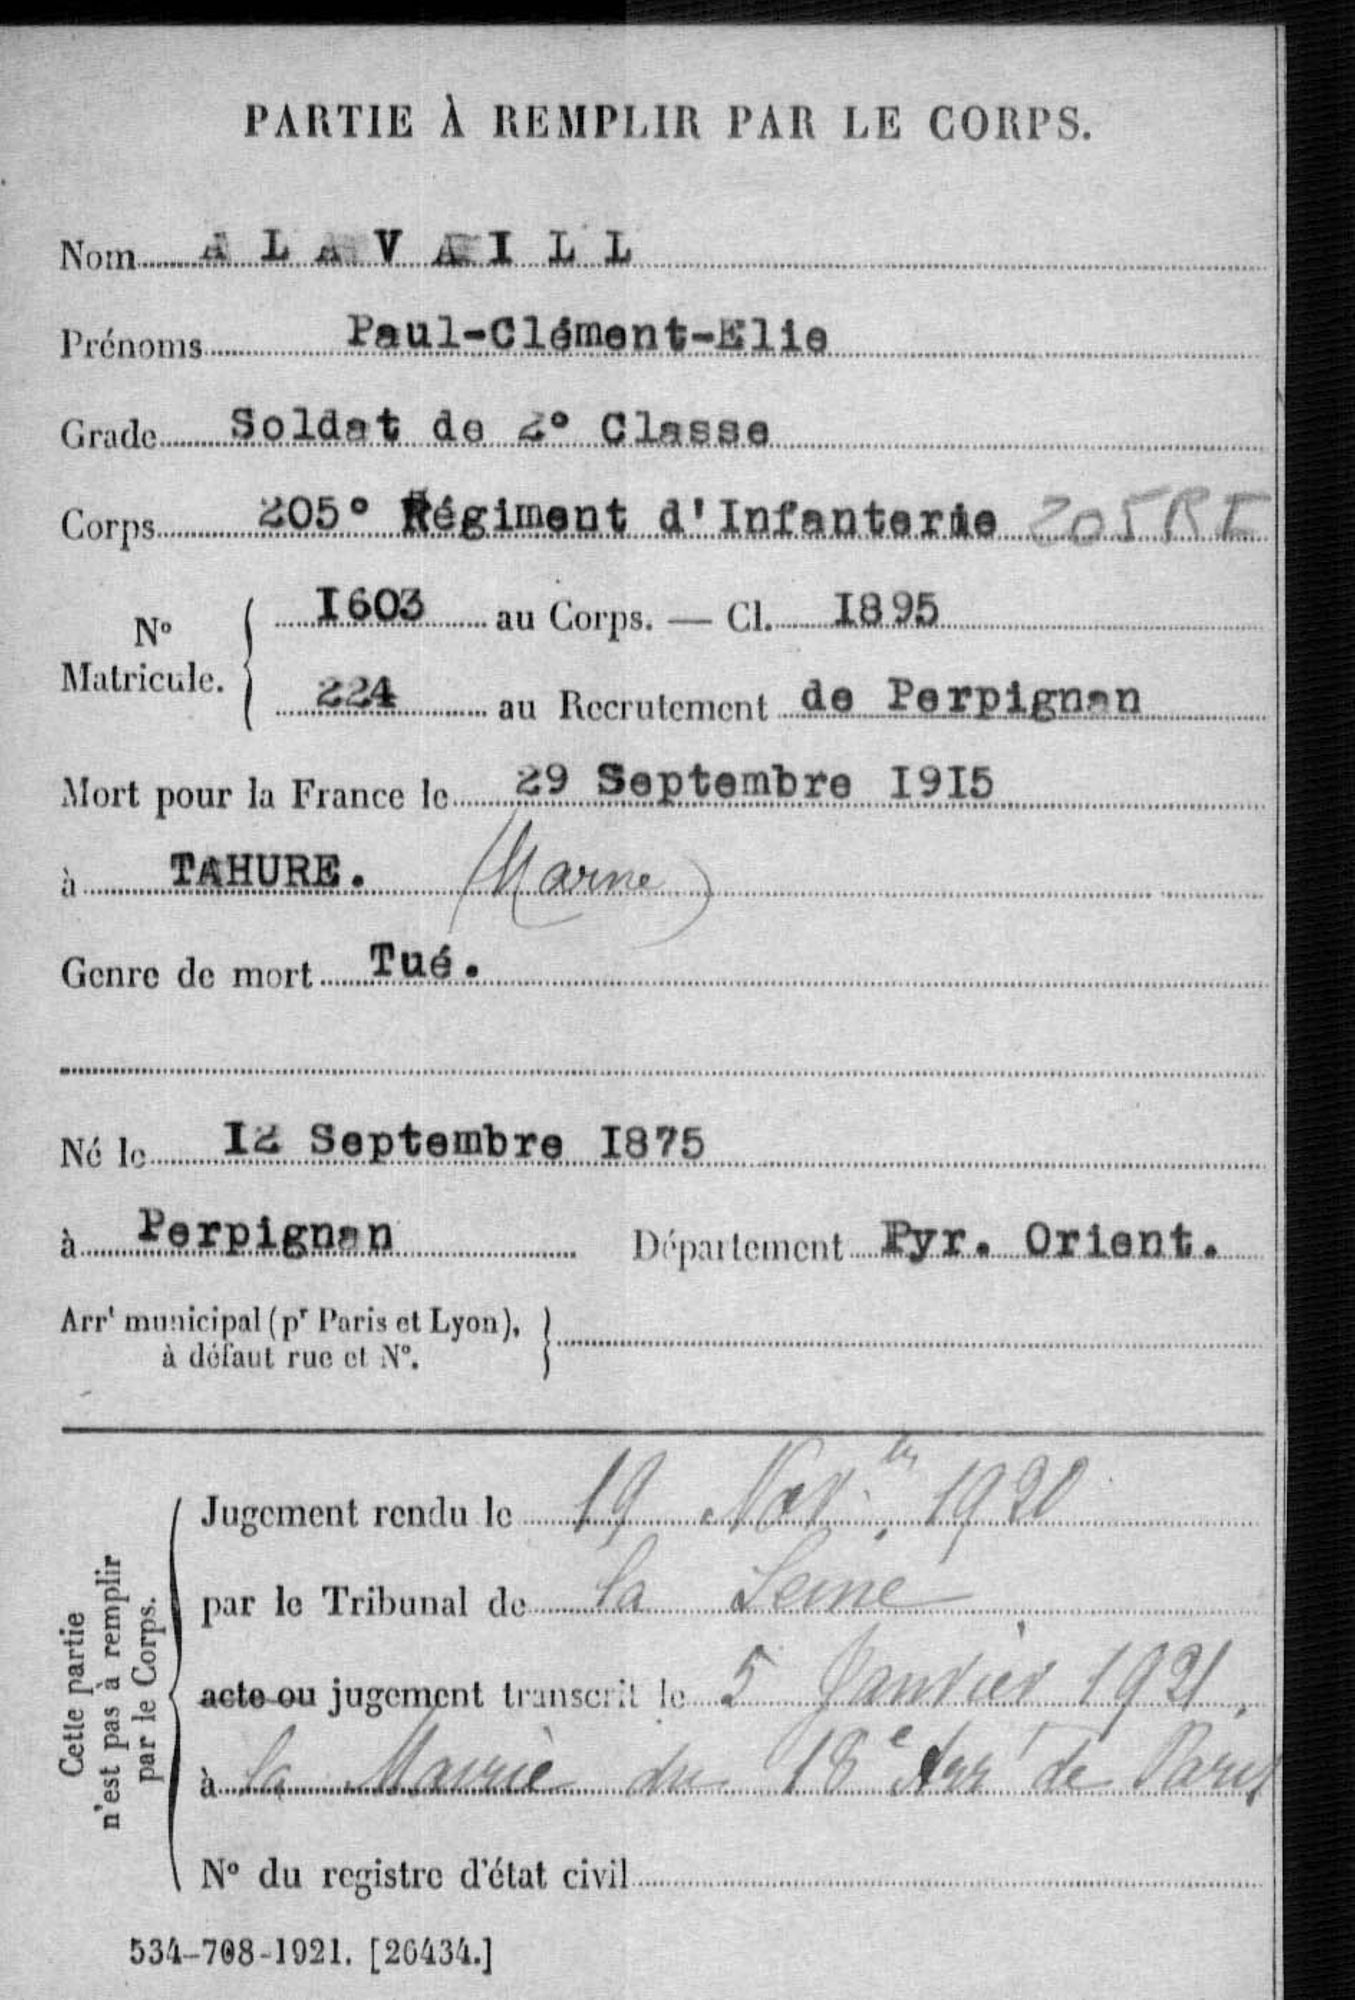 PARTIE À REMPLIR PAR LE CORPS.
Nom ALAVAILL
Prénoms Paul-Clément-Elie
Grade Soldat de 2° Classe
Corps 205° Régiment d'Infanterie 205 RI
N° Matricule. { 1603 au Corps. — Cl. 1895
224 au Recrutement de Perpignan
Mort pour la France le 29 Septembre 1915
à TAHURE. (Marne)
Genre de mort Tué.
Né le 12 Septembre 1875
à Perpignan Département Pyr. Orient.
Arrt municipal (pr Paris et Lyon),
à défaut rue et N°.
Cette partie
n'est pas à remplir
par le Corps.
Jugement rendu le 19 Nov.bre 1920
par le Tribunal de la Seine
acte ou jugement transcrit le 5 Janvier 1921.
à la Mairie du 18e Arrt de Paris
N° du registre d'état civil
534-708-1921. [26434.]